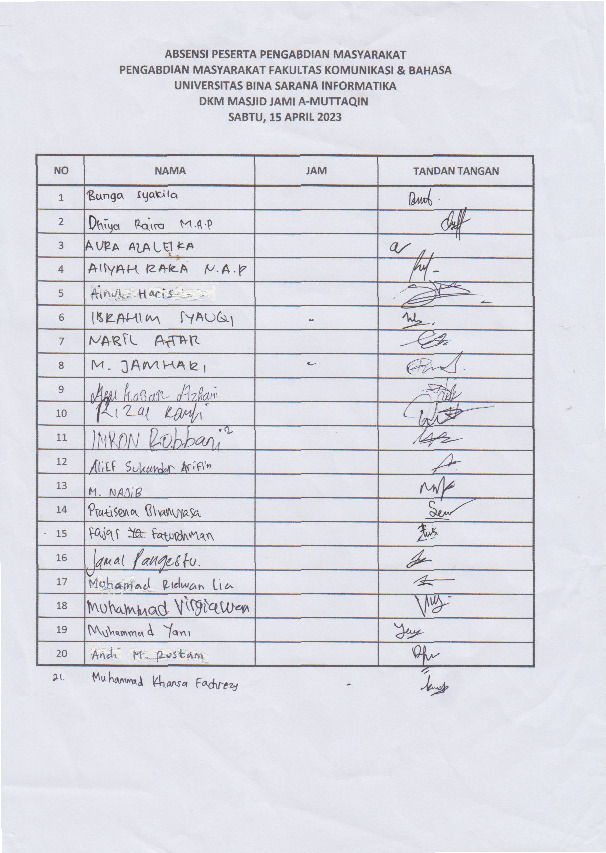 ABSENSI PESERTA PENGABDIAN MASYARAKAT
PENGABDIAN MASYARAKAT FAKULTAS KOMUNIKASI & BAHASA
UNIVERSITAS BINA SARANA INFORMATIKA
DKM MASJID JAMI A-MUTTAQIN
SABTU, 15 APRIL 2023
NO NAMA JAM TANDAN TANGAN
1 Bunga Syakila
2 Dhiya Raira M.A.P
3 AURA AZALEIKA
4 AISYAH RARA N.A.P
5 Ainul Haris
6 IBRAHIM SYAUQI -
7 NABIL ATTAR
8 M. JAMHARI -
9 Hasan Azhari
10 Rizal Ramli
11 IMRON Robbani
12 Alief Sukandar Arifin
13 M. NAJIB
14 Pratisena Bhamyasa
15 Fajar Faturohman
16 Jamal Pangestu.
17 Mohamad Ridwan Lia
18 Muhammad Virgiawan
19 Muhammad Yani
20 Andi M. Rustam
21. Muhammad Khansa Fachrezy -